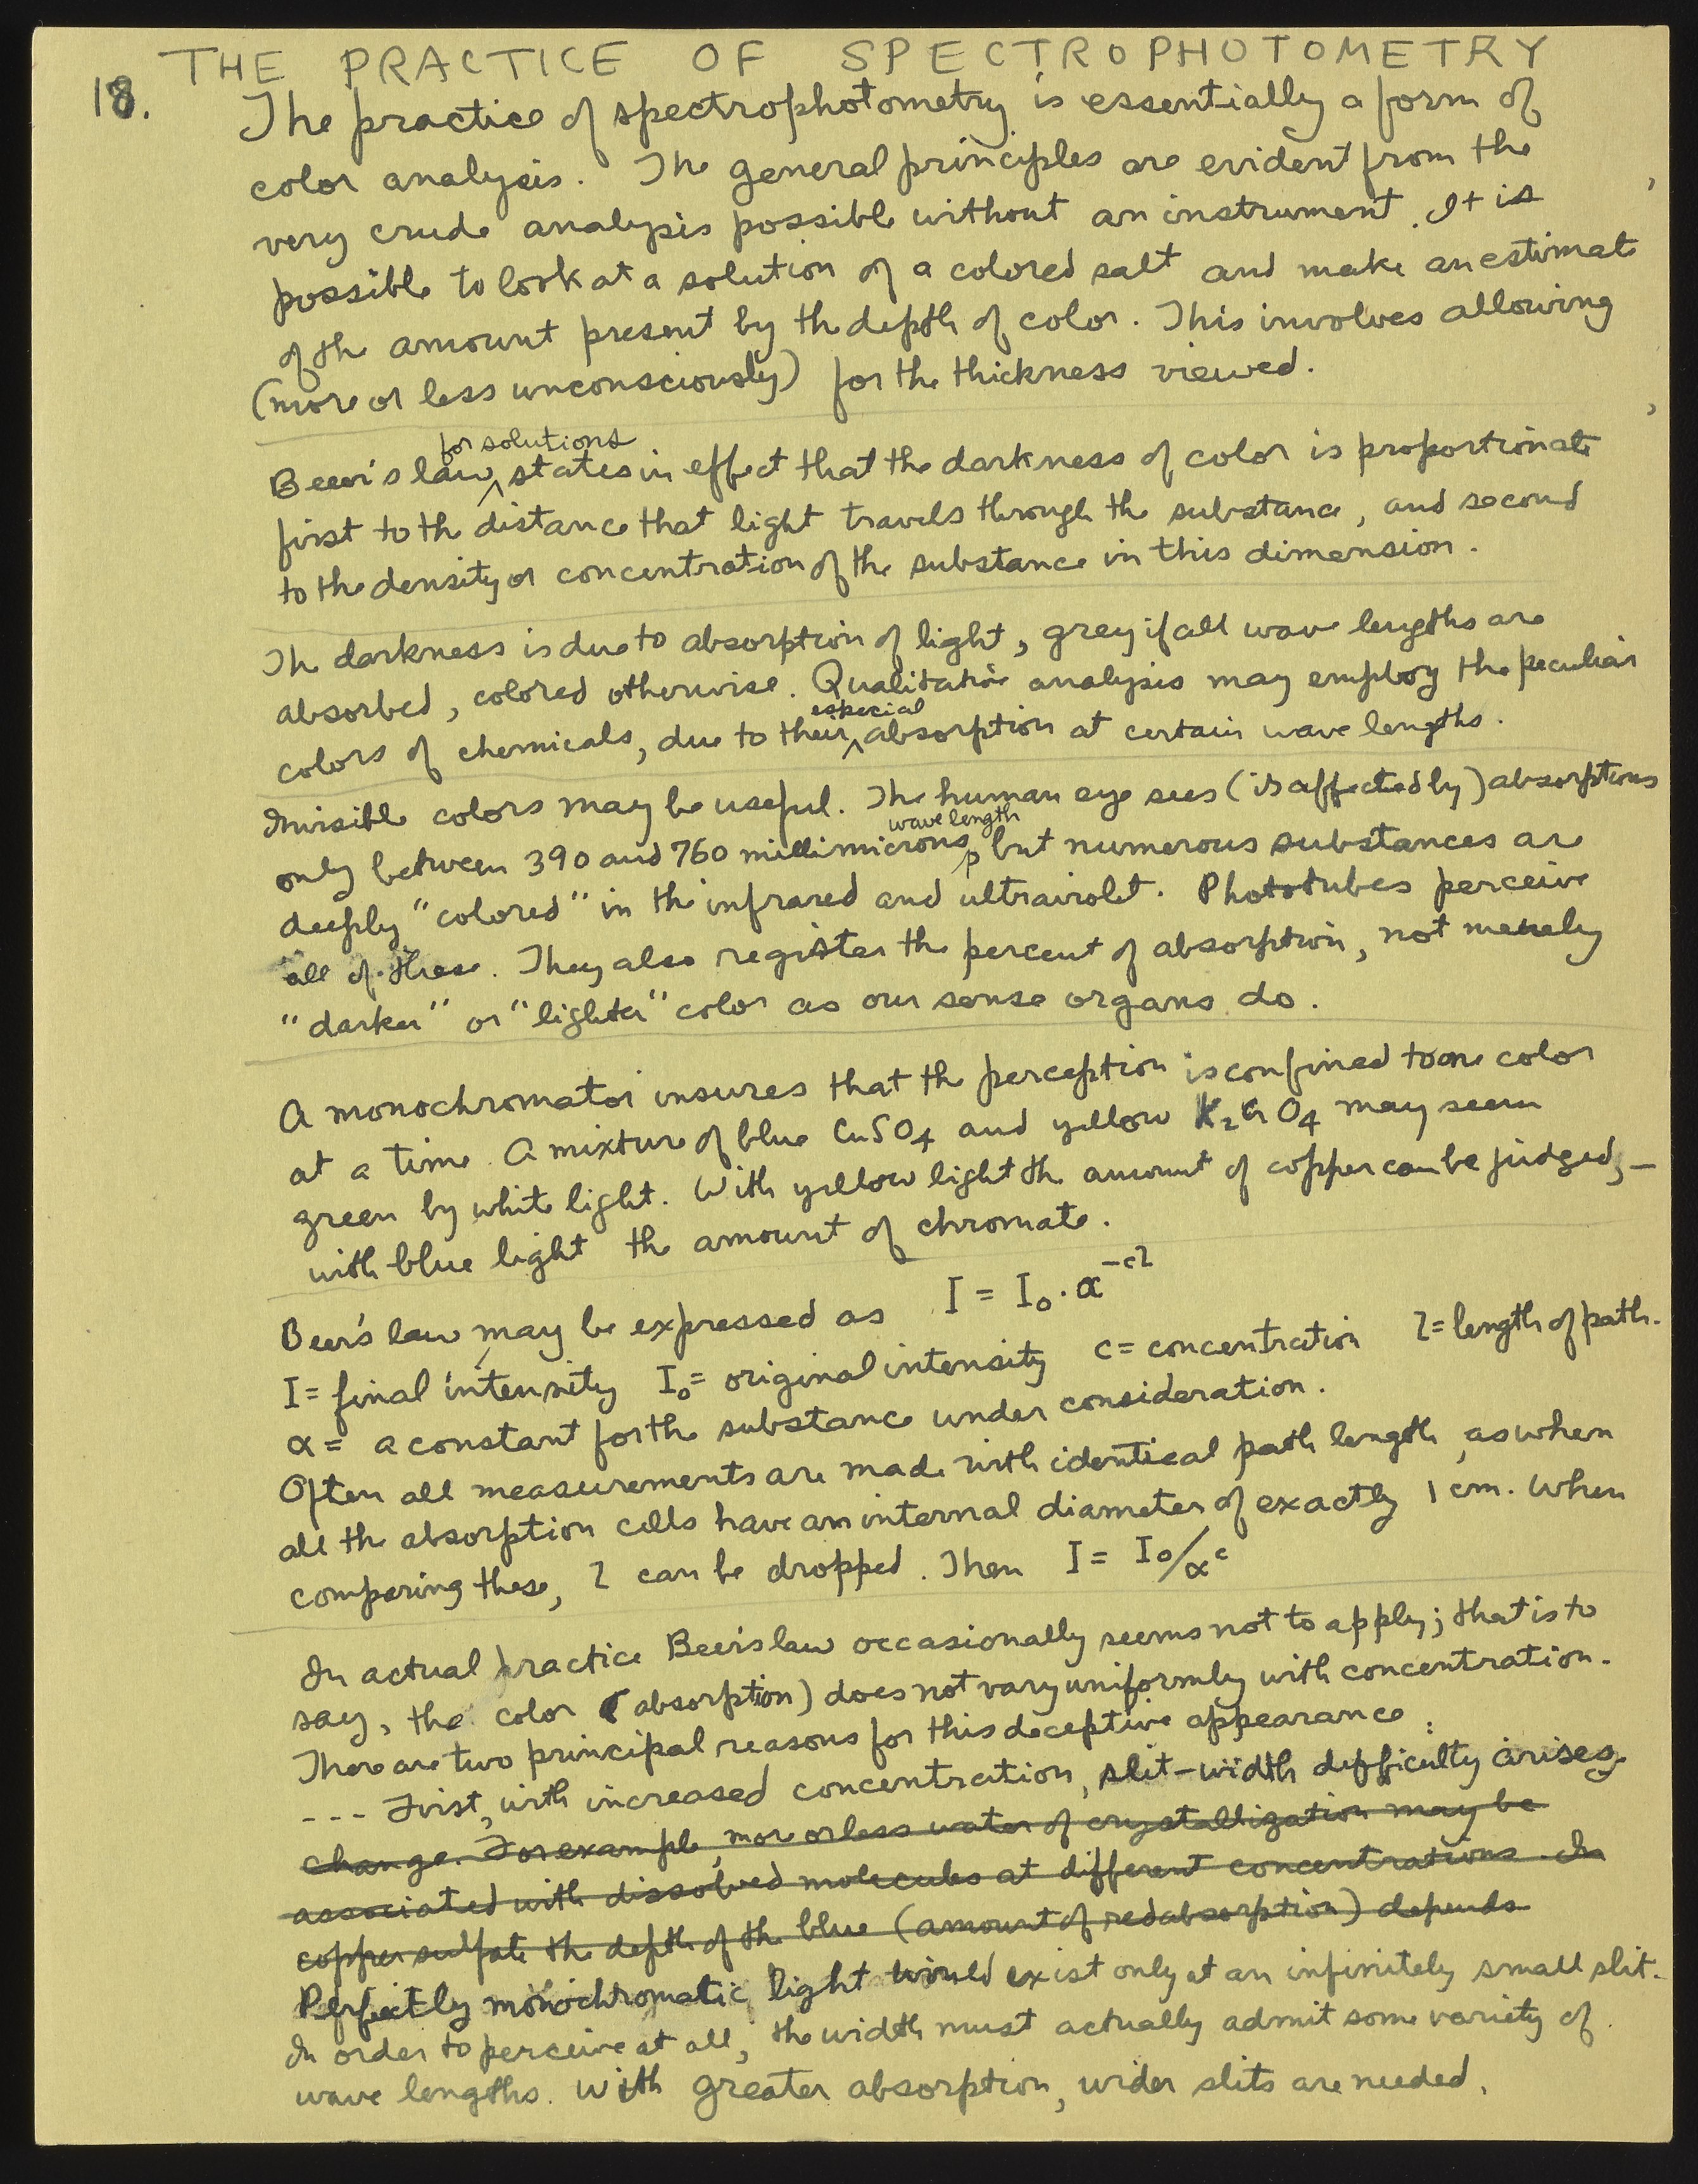 THE PRACTICE OF SPECTROPHOTOMETRY
18. The practice of spectrophotometry is essentially a form of
color analysis. The general principles are evident from the
very crude analysis possible without an instrument. It is
possible to look at a solution of a colored salt and make an estimate
of the amount present by the depth of color. This involves allowing
(more or less unconsciously) for the thickness viewed.
for solutions
Beer's law ^ states in effect that the darkness of color is proportionate
first to the distance that light travels through the substance, and second
to the density or concentration of the substance in this dimension.
The darkness is due to absorption of light, grey if all wave lengths are
absorbed, colored otherwise. Qualitative analysis may employ the peculiar
especial
colors of chemicals, due to their ^ absorption at certain wave lengths.
Invisible colors may be useful. The human eye sees (is affected by) absorptions
wave length
only between 390 and 760 millimicrons, but numerous substances are
deeply "colored" in the infrared and ultraviolet. Phototubes perceive
all of these. They also register the percent of absorption, not merely
"darker" or "lighter" color as our sense organs do.
A monochromator insures that the perception is confined to one color
at a time. A mixture of blue CuSO4 and yellow K2CrO4 may seem
green by white light. With yellow light the amount of copper can be judged, –
with blue light the amount of chromate.
Beer's law may be expressed as I = I₀ · α⁻ᶜˡ
I = final intensity I₀ = original intensity c = concentration l = length of path.
α = a constant for the substance under consideration.
Often all measurements are made with identical path length, as when
all the absorption cells have an internal diameter of exactly 1 cm. When
comparing these, l can be dropped. Then I = I₀/αᶜ
In actual practice Beer's law occasionally seems not to apply; that is to
say, the color (absorption) does not vary uniformly with concentration.
There are two principal reasons for this deceptive appearance:
--- First, with increased concentration, slit-width difficulty arises.
change. For example, more or less water of crystallization may be
associated with dissolved molecules at different concentrations. In
copper sulfate the depth of the blue (amount of red absorption) depends
Perfectly monochromatic light would exist only at an infinitely small slit.
In order to perceive at all, the width must actually admit some variety of
wave lengths. With greater absorption, wider slits are needed.